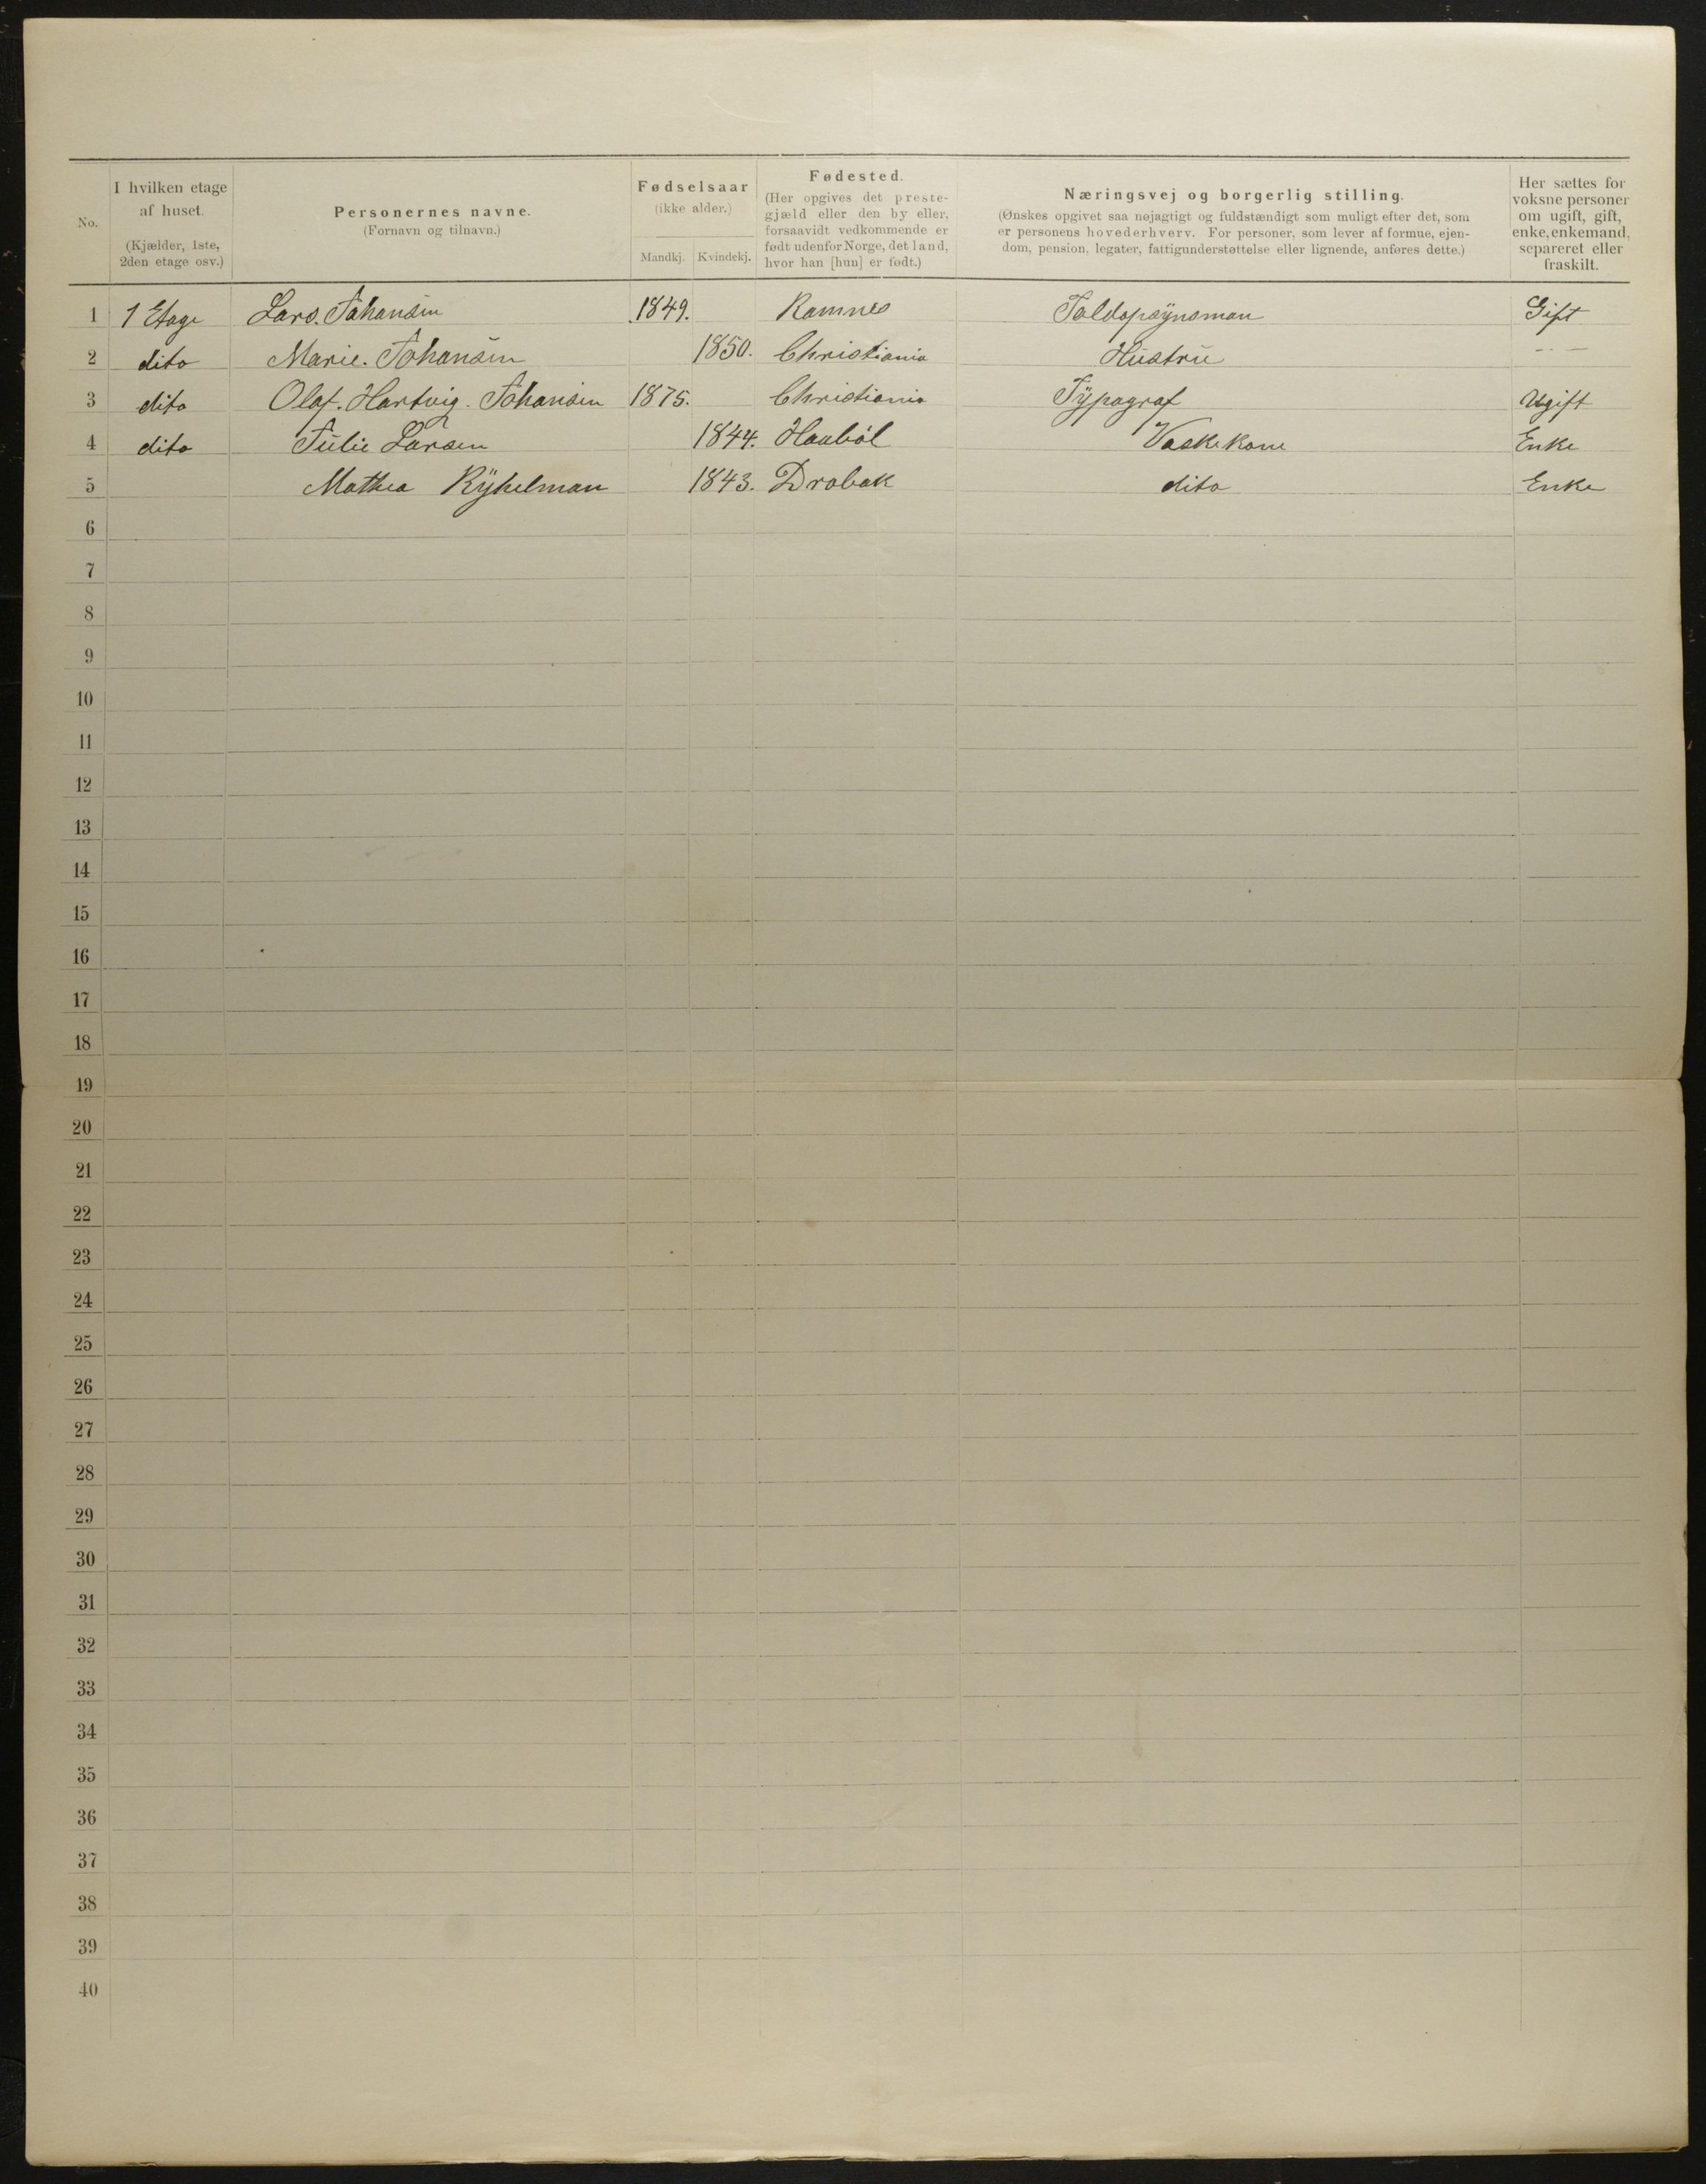 No.
I hvilken etage
af huset.
(Kjælder, 1ste,
2den etage osv.)
Personernes navne.
(Fornavn og tilnavn.)
Fødselsaar
(ikke alder.)
Mandkj. Kvindekj.
Fødested.
(Her opgives det preste-
gjæld eller den by eller,
forsaavidt vedkommende er
født udenfor Norge, det land,
hvor han [hun] er født.)
Næringsvej og borgerlig stilling.
(Ønskes opgivet saa nøjagtigt og fuldstændigt som muligt efter det, som
er personens hovederhverv. For personer, som lever af formue, ejen-
dom, pension, legater, fattigunderstøttelse eller lignende, anføres dette.)
Her sættes for
voksne personer
om ugift, gift,
enke, enkemand,
separeret eller
fraskilt.
1 1 Etage Lars. Johansen 1849. Ramnes Toldopsynsman Gift
2 dito Marie. Johansen 1850. Christiania Hustru -"-
3 dito Olaf. Hartvig. Johansen 1875. Christiania Typograf Ugift
4 dito Julie Larsen 1844. Haaböl Vaskekone Enke
5 Mathea Ryhelman 1843. Drobak dito Enke
6
7
8
9
10
11
12
13
14
15
16
17
18
19
20
21
22
23
24
25
26
27
28
29
30
31
32
33
34
35
36
37
38
39
40